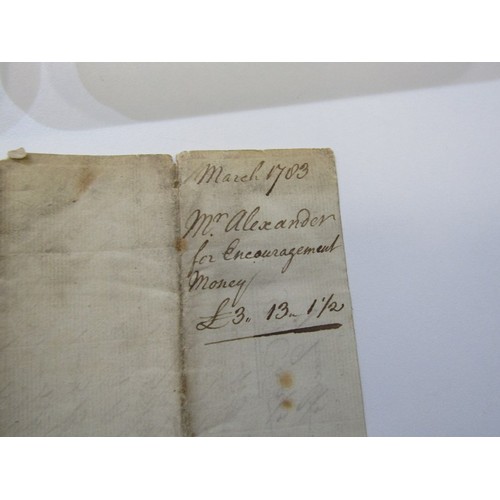 March 1783
Mr. Alexander
for Encouragement
Money
£3. 13. 1 1/2